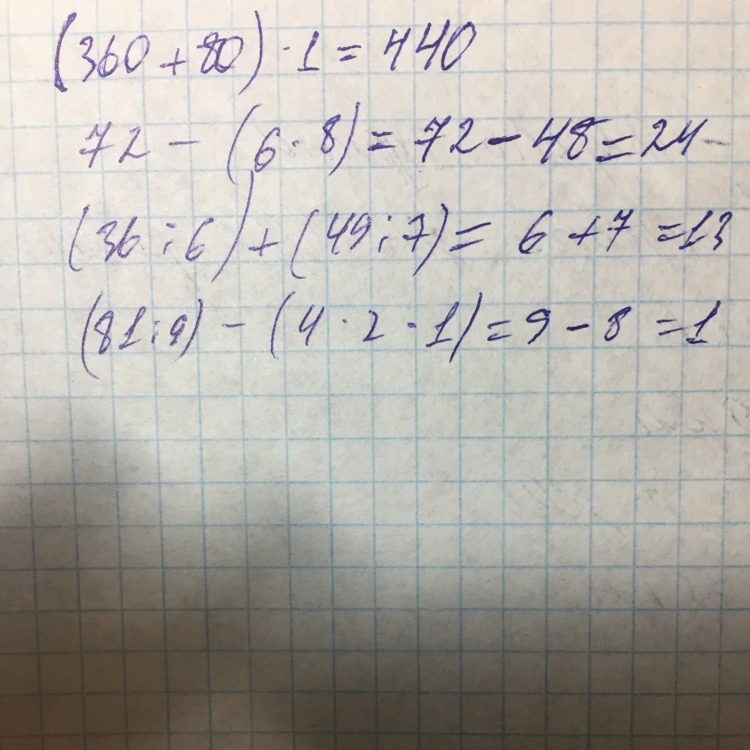 (360+80)·1=440
72-(6·8)=72-48=24
(36:6)+(49:7)=6+7=13
(81:9)-(4·2·1)=9-8=1